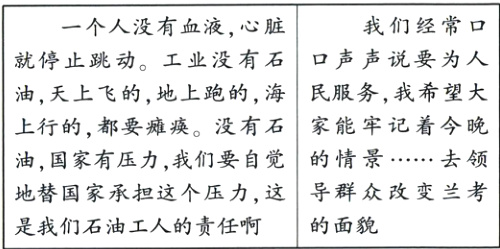 一个人没有血液,心脏
就停止跳动。工业没有石
油,天上飞的,地上跑的,海
上行的,都要瘫痪。没有石
油,国家有压力,我们要自觉
地替国家承担这个压力,这
是我们石油工人的责任啊
我们经常口
口声声说要为人
民服务,我希望大
家能牢记着今晚
的情景……去领
导群众改变兰考
的面貌